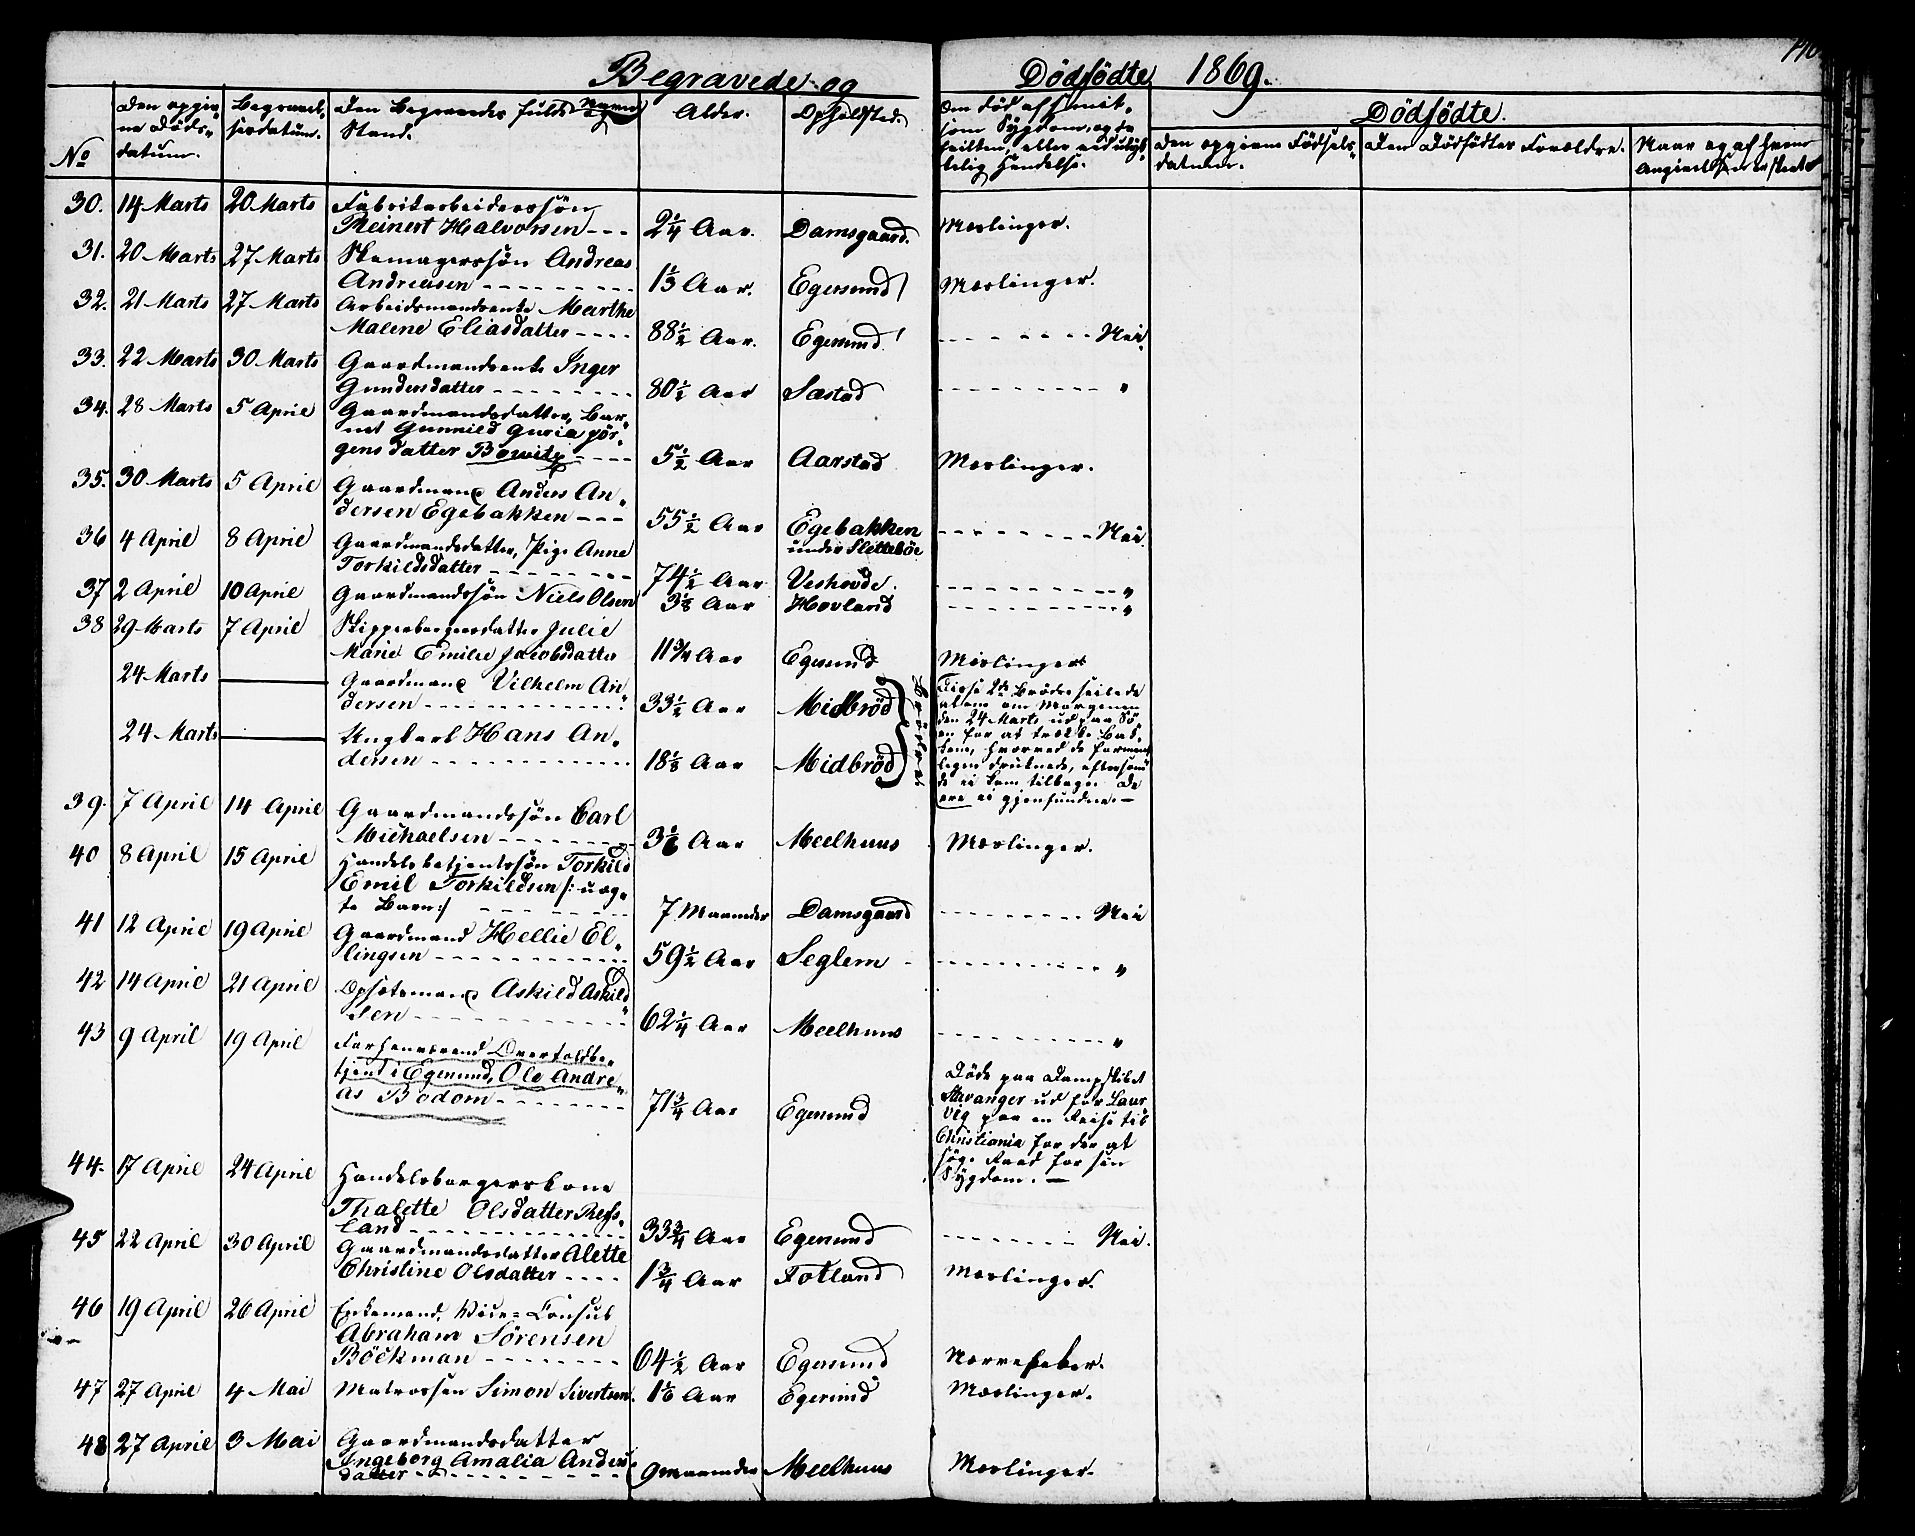 Begravede og Dödfödte 1869.
No
Den opgiv-
ne Döds-
datum.
Begravel-
sesdatum.
Den Begravedes fulde Navn og
Stand.
Alder.
Opholdsted.
Om död af smit-
som Sygdom, og da
hvilken, eller ved ulyk-
kelig Hendelse.
Dödfödte.
Den opgivne Födsels-
datum.
Den Dödfödtes Forældre.
Naar og af hvem
30. 14 Marts 20 Marts Fabrikarbeiderssön
Reinert Halvorsen --- 2¼ Aar. Damsgaard. Mæslinger.
31. 20 Marts 27 Marts Skomagerssön Andreas
Andreasen 1⅓ Aar. Egersund Mæslinger.
32. 21 Marts 27 Marts Arbeidsmandsenke Marthe
Malene Eliasdatter ---- 88½ Aar. Egersund Nei
33. 22 Marts 30 Marts Gaardmandsenke Inger
Gundersdatter 80½ Aar Sæstad "
34. 28 Marts 5 April Gaardmandsdatter, Bar-
net Gunnild Guria Jör-
gensdatter Bowitz 5½ Aar Aarstad Mæslinger.
35. 30 Marts 5 April Gaardmand Anders An-
dersen Egebakken --- 55½ Aar Egebakken
under Sletteböe Nei.
36 4 April 8 April Gaardmandsdatter, Pige Anne
Torkildsdatter 74½ Aar Veshovde. "
37 2 April 10 April Gaardmandssön Niels Olsen 3⅛ Aar Hovland "
38 29 Marts 7 April Skipperborgersdatter Julie
Marie Emilie Jacobsdatter 11¾ Aar Egersund Mæslinger
24 Marts Gaardmand Vilhelm An-
dersen 33½ Aar Midbröd
24 Marts Ungkarl Hans An-
dersen 18⅛ Aar Midbröd
Disse 2de Brödre seilede
alene om Morgenen
den 24 Marts ud paa Sö-
en for at trække Bak-
kene, hvorved de forment-
ligen druknede, eftersom
de ei kom tilbage. De
ere ei gjenfundne.
39. 7 April 14 April Gaardmandssön Carl
Michaelsen 3⅙ Aar Meelhuus Mæslinger.
40 8 April 15 April Handelsbetjentssön Torkild
Emil Torkildsen /: uæg-
te Barn:/ 7 Maaneder Damsgaard Nei
41 12 April 19 April Gaardmand Hellie El-
lingsen 59½ Aar Seglem "
42 14 April 21 April Opsatsmand Askild Askild-
sen 62¼ Aar Meelhuus "
43 9 April 19 April Forhenværend Overtoldbe-
tjent i Egersund, Ole Andre-
as Bodom 71¾ Aar Egersund
Döde paa Dampskibet
Stavanger ud for Laur-
vig paa en Reise til
Christiania for der at
söge Raad for sin
Sygdom.
44. 17 April 24 April Handelsborgerskone
Thalette Olsdatter Reys-
land 33¾ Aar Egersund Nei.
45 22 April 30 April Gaardmandsdatter Alette
Christine Olsdatter ---- 1¾ Aar Fotland Mæslinger.
46 19 April 26 April Enkemand, Vice-Consul
Abraham Sörensen
Böckman 64½ Aar Egersund Nervefeber.
47 27 April 4 Mai Matrossön Simon Sivertsen. 1⅙ Aar Egersund Mæslinger.
48 27 April 3 Mai Gaardmandsdatter
Ingeborg Amalia Anders-
datter 9 Maaneder Meelhuus Mæslinger.